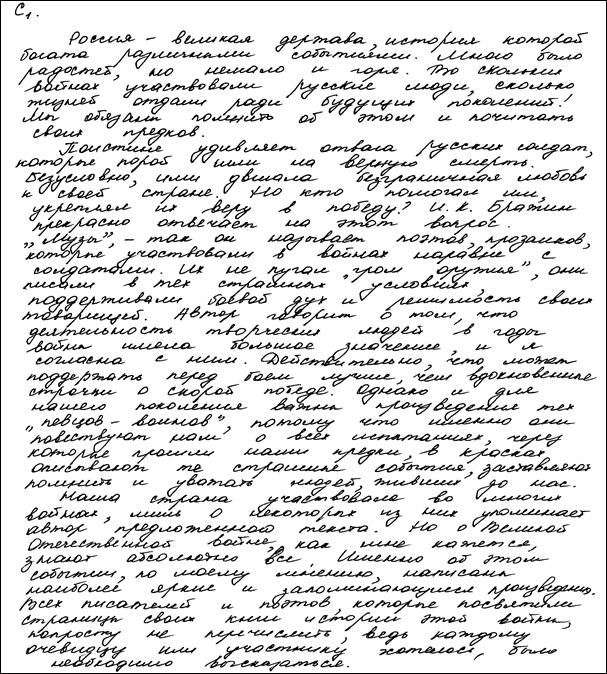 С1.
Россия – великая держава, история которой
богата различными событиями. Много было
радостей, но немало и горя. Во скольких
войнах участвовали русские люди, сколько
жизней отдали ради будущих поколений!
Мы обязаны помнить об этом и почитать
своих предков.
Поистине удивляет отвага русских солдат,
которые порой шли на верную смерть.
Безусловно, ими двигала безграничная любовь
к своей стране. Но кто помогал им,
укреплял их веру в победу? И.К. Бражин
прекрасно отвечает на этот вопрос.
„Музы", – так он называет поэтов, прозаиков,
которые участвовали в войнах наравне с
солдатами. Их не пугал „гром оружия", они
писали в тех страшных условиях,
поддерживали боевой дух и решимость своих
товарищей. Автор говорит о том, что
деятельность творческих людей в годы
войны имела большое значение, и я
согласна с ним. Действительно, что может
поддержать перед боем лучше, чем вдохновенные
строчки о скорой победе. Однако и для
нашего поколения важны произведения тех
„певцов – воинов", потому что именно они
повествуют нам о всех испытаниях, через
которые прошли наши предки, в красках
описывают те страшные события, заставляют
помнить и уважать людей, живших до нас.
Наша страна участвовала во многих
войнах, лишь о некоторых из них упоминает
автор предложенного текста. Но о Великой
Отечественной войне, как мне кажется,
знают абсолютно все. Именно об этом
событии, по моему мнению, написаны
наиболее яркие и запоминающиеся произведения.
Всех писателей и поэтов, которые посвятили
страницы своих книг истории этой войны,
попросту не перечислить, ведь каждому
очевидцу или участнику хотелось, было
необходимо высказаться.